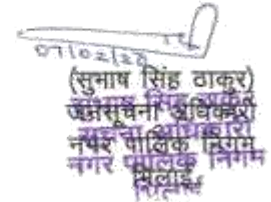 07/02/20
(सुभाष सिंह ठाकुर)
जनसूचना अधिकारी
नगर पालिक निगम
भिलाई